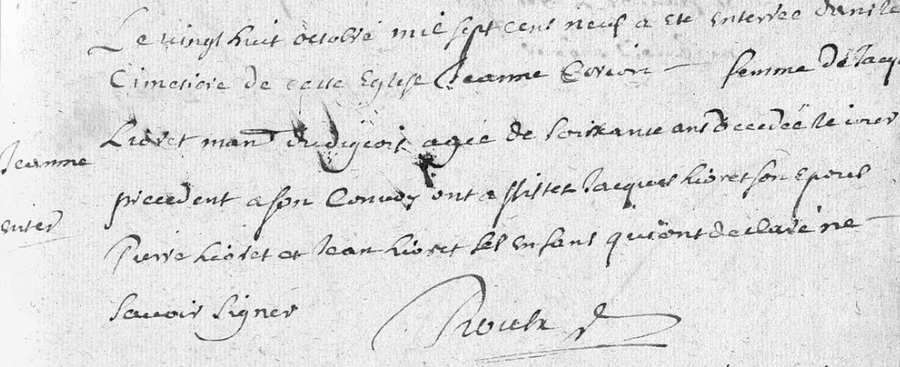 Le vingt huit octobre mil sept cens neuf a ete enterrée dans le
Cimetiere de cette Eglise Jeanne Corion femme de Jacq
Lioret man agée de soixante ans decedée le jour
Jeanne
precedent a son Convoy ont assistez Jacques Lioret son Epous
enter
Pierre Lioret et Jean Lioret ses Enfans qui ont declaré ne
savoir signer